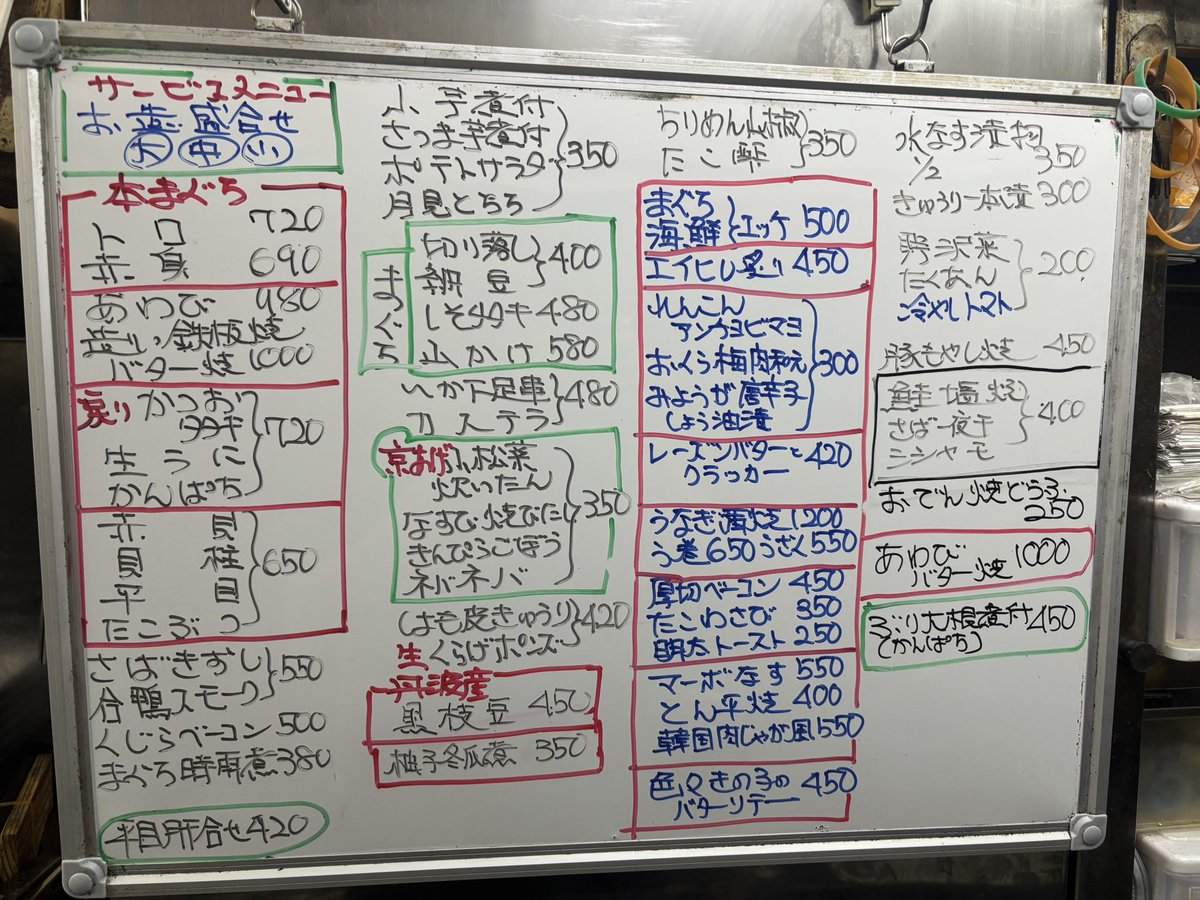 サービスメニュー
お造り盛合せ
大 中 小
本まぐろ
トロ 720
赤身 690
あわび 980
造り・鉄板焼
バター焼 1000
戻り かつお
タタキ
生うに
かんぱち
720
赤貝
貝柱
平目
たこぶつ
650
さばきずし
合鴨スモーク
550
くじらベーコン 500
まぐろ時雨煮 380
平目肝合せ 420
小芋煮付
さつま芋煮付
ポテトサラダ
月見とろろ
350
まぐろ
切り落し
納豆
400
しそタタキ 480
山かけ 580
いか下足串
カステラ
480
京あげ小松菜
炊いたん
なすび焼びたし
きんぴらごぼう
ネバネバ
350
はも皮きゅうり
生くらげポンズ
420
丹波産
黒枝豆 450
柚子冬瓜煮 350
ちりめん山椒
たこ
350
まぐろ
海鮮
とエッケ 500
エイヒレ炙り 450
れんこん
アンチョビマヨ
おくら梅肉和え
みょうが唐辛子
しょう油漬
300
レーズンバターと
クラッカー
420
うなぎ蒲焼 1200
う巻 650 うざく 550
厚切ベーコン 450
たこわさび 350
明太トースト 250
マーボなす 550
とん平焼 400
韓国肉じゃが風 550
色々きの子の
バターソテー
450
水なす漬物
1/2 350
きゅうり一本漬 300
野沢菜
たくあん
冷やしトマト
200
豚もやし焼 450
鮭塩焼
さば一夜干
シシャモ
400
おでん焼どうふ
250
あわび
バター焼 1000
ぶり大根煮付 450
(かんぱち)